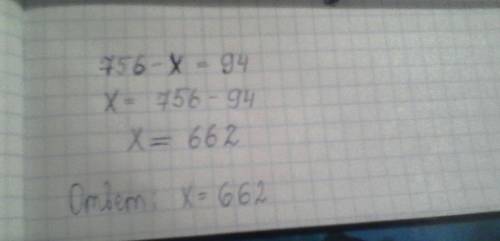 756 - x = 94
x = 756 - 94
x = 662
Ответ: x = 662